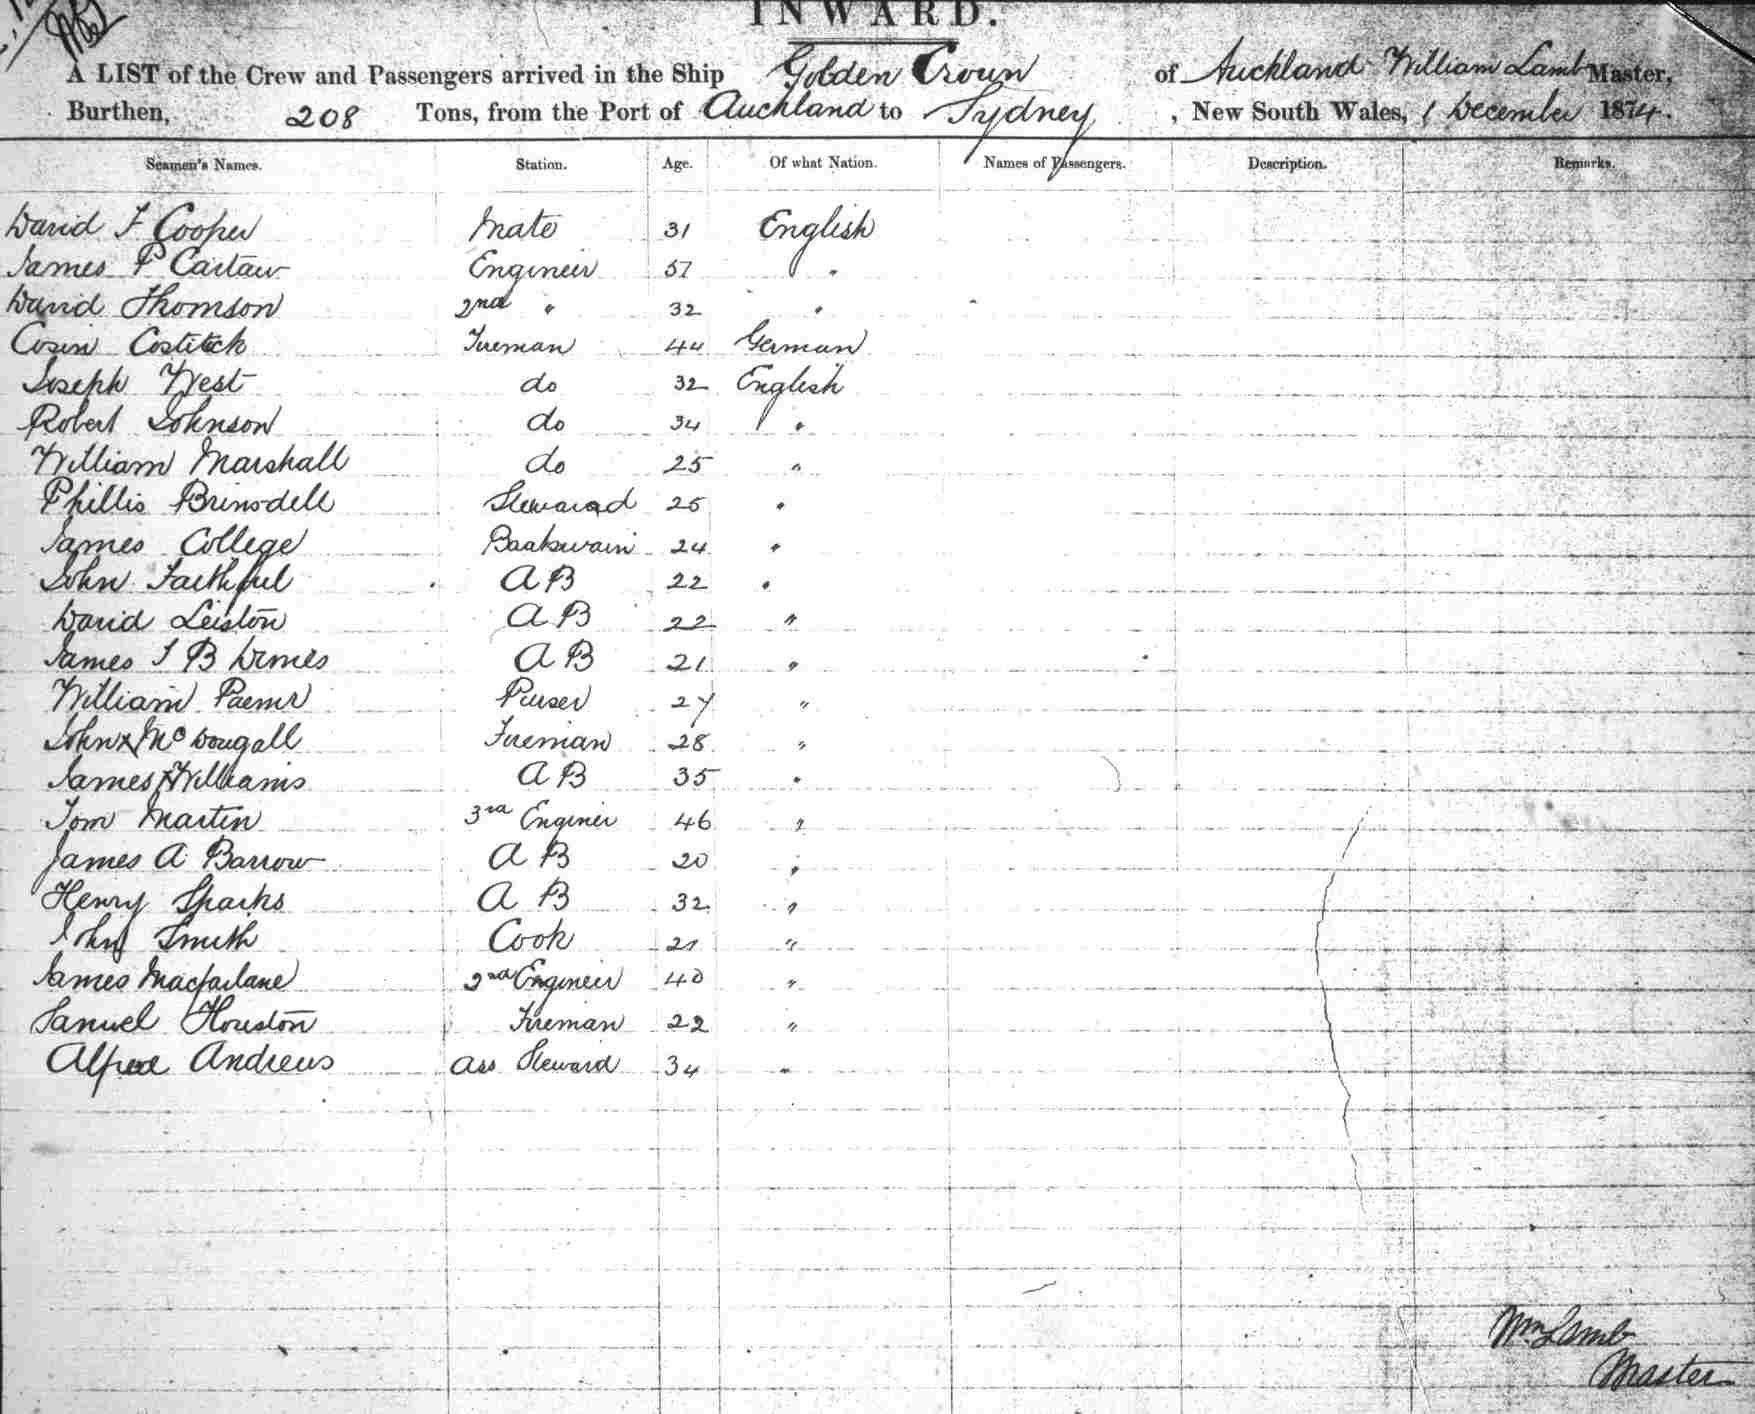 INWARD.
A LIST of the Crew and Passengers arrived in the Ship Golden Crown of Auckland William Lamb Master,
Burthen, 208 Tons, from the Port of Auckland to Sydney, New South Wales, 1 December 1874.
Seamen's Names. Station. Age. Of what Nation. Names of Passengers. Description. Remarks.
David F Cooper Mate 31 English
James P Cartaw Engineer 57 "
David Thomson 2nd " 32 "
Cosin Costitck Fireman 44 German
Joseph West do 32 English
Robert Johnson do 34 "
William Marshall do 25 "
Phillis Brinsdell Steward 25 "
James College Boatswain 24 "
John Faithful A B 22 "
David Leiston A B 22 "
James J B Dimes A B 21 "
William Purser 27 "
John x McDougall Fireman 28 "
James x Williams A B 35 "
Tom Martin 3rd Enginer 46 "
James A Barrow A B 20 "
Henry Sparks A B 32 "
John Smith Cook 21 "
James Macfarlane 2nd Engineer 40 "
Samuel Houston Fireman 22 "
Alfred Andrews Ass Steward 34 "
Wm Lamb
Master